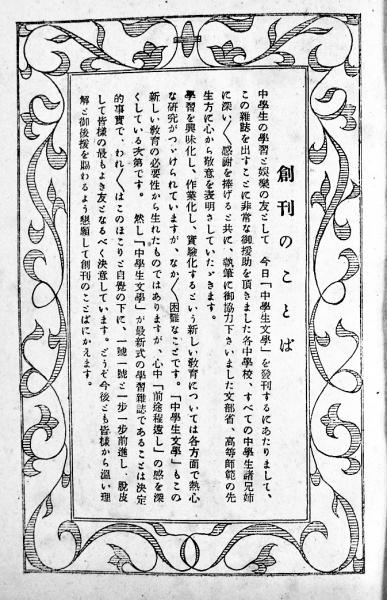 創刊のことば
中學生の學習と娛樂の友として 今日「中學生文學」を發刊するにあたりまして、
この雜誌を出すことに非常な御援助を頂きました各中學校、すべての中學生諸兄姉
に深い〱感謝を捧げると共に、執筆に御協力下さいました文部省、高等師範の先
生方に心から敬意を表明さしていたゞきます。
學習を興味化し、作業化し、實驗化するという新しい教育については各方面で熱心
な研究がつゞけられていますが、なか〱困難なことです。「中學生文學」もこの
新しい教育の必要性から生れたものではありますが、心中「前途程遠し」の感を深
くしている次第です。 然し「中學生文學」が最新式の學習雜誌であることは決定
的事實で、われ〱はこのほこりと自覺の下に、一號一號と一步一步前進し、脫皮
して皆樣の最もよき友となるべく決意しています。どうぞ今後とも皆樣から溫い理
解と御後援を賜わるよう懇願して創刊のことばにかえます。